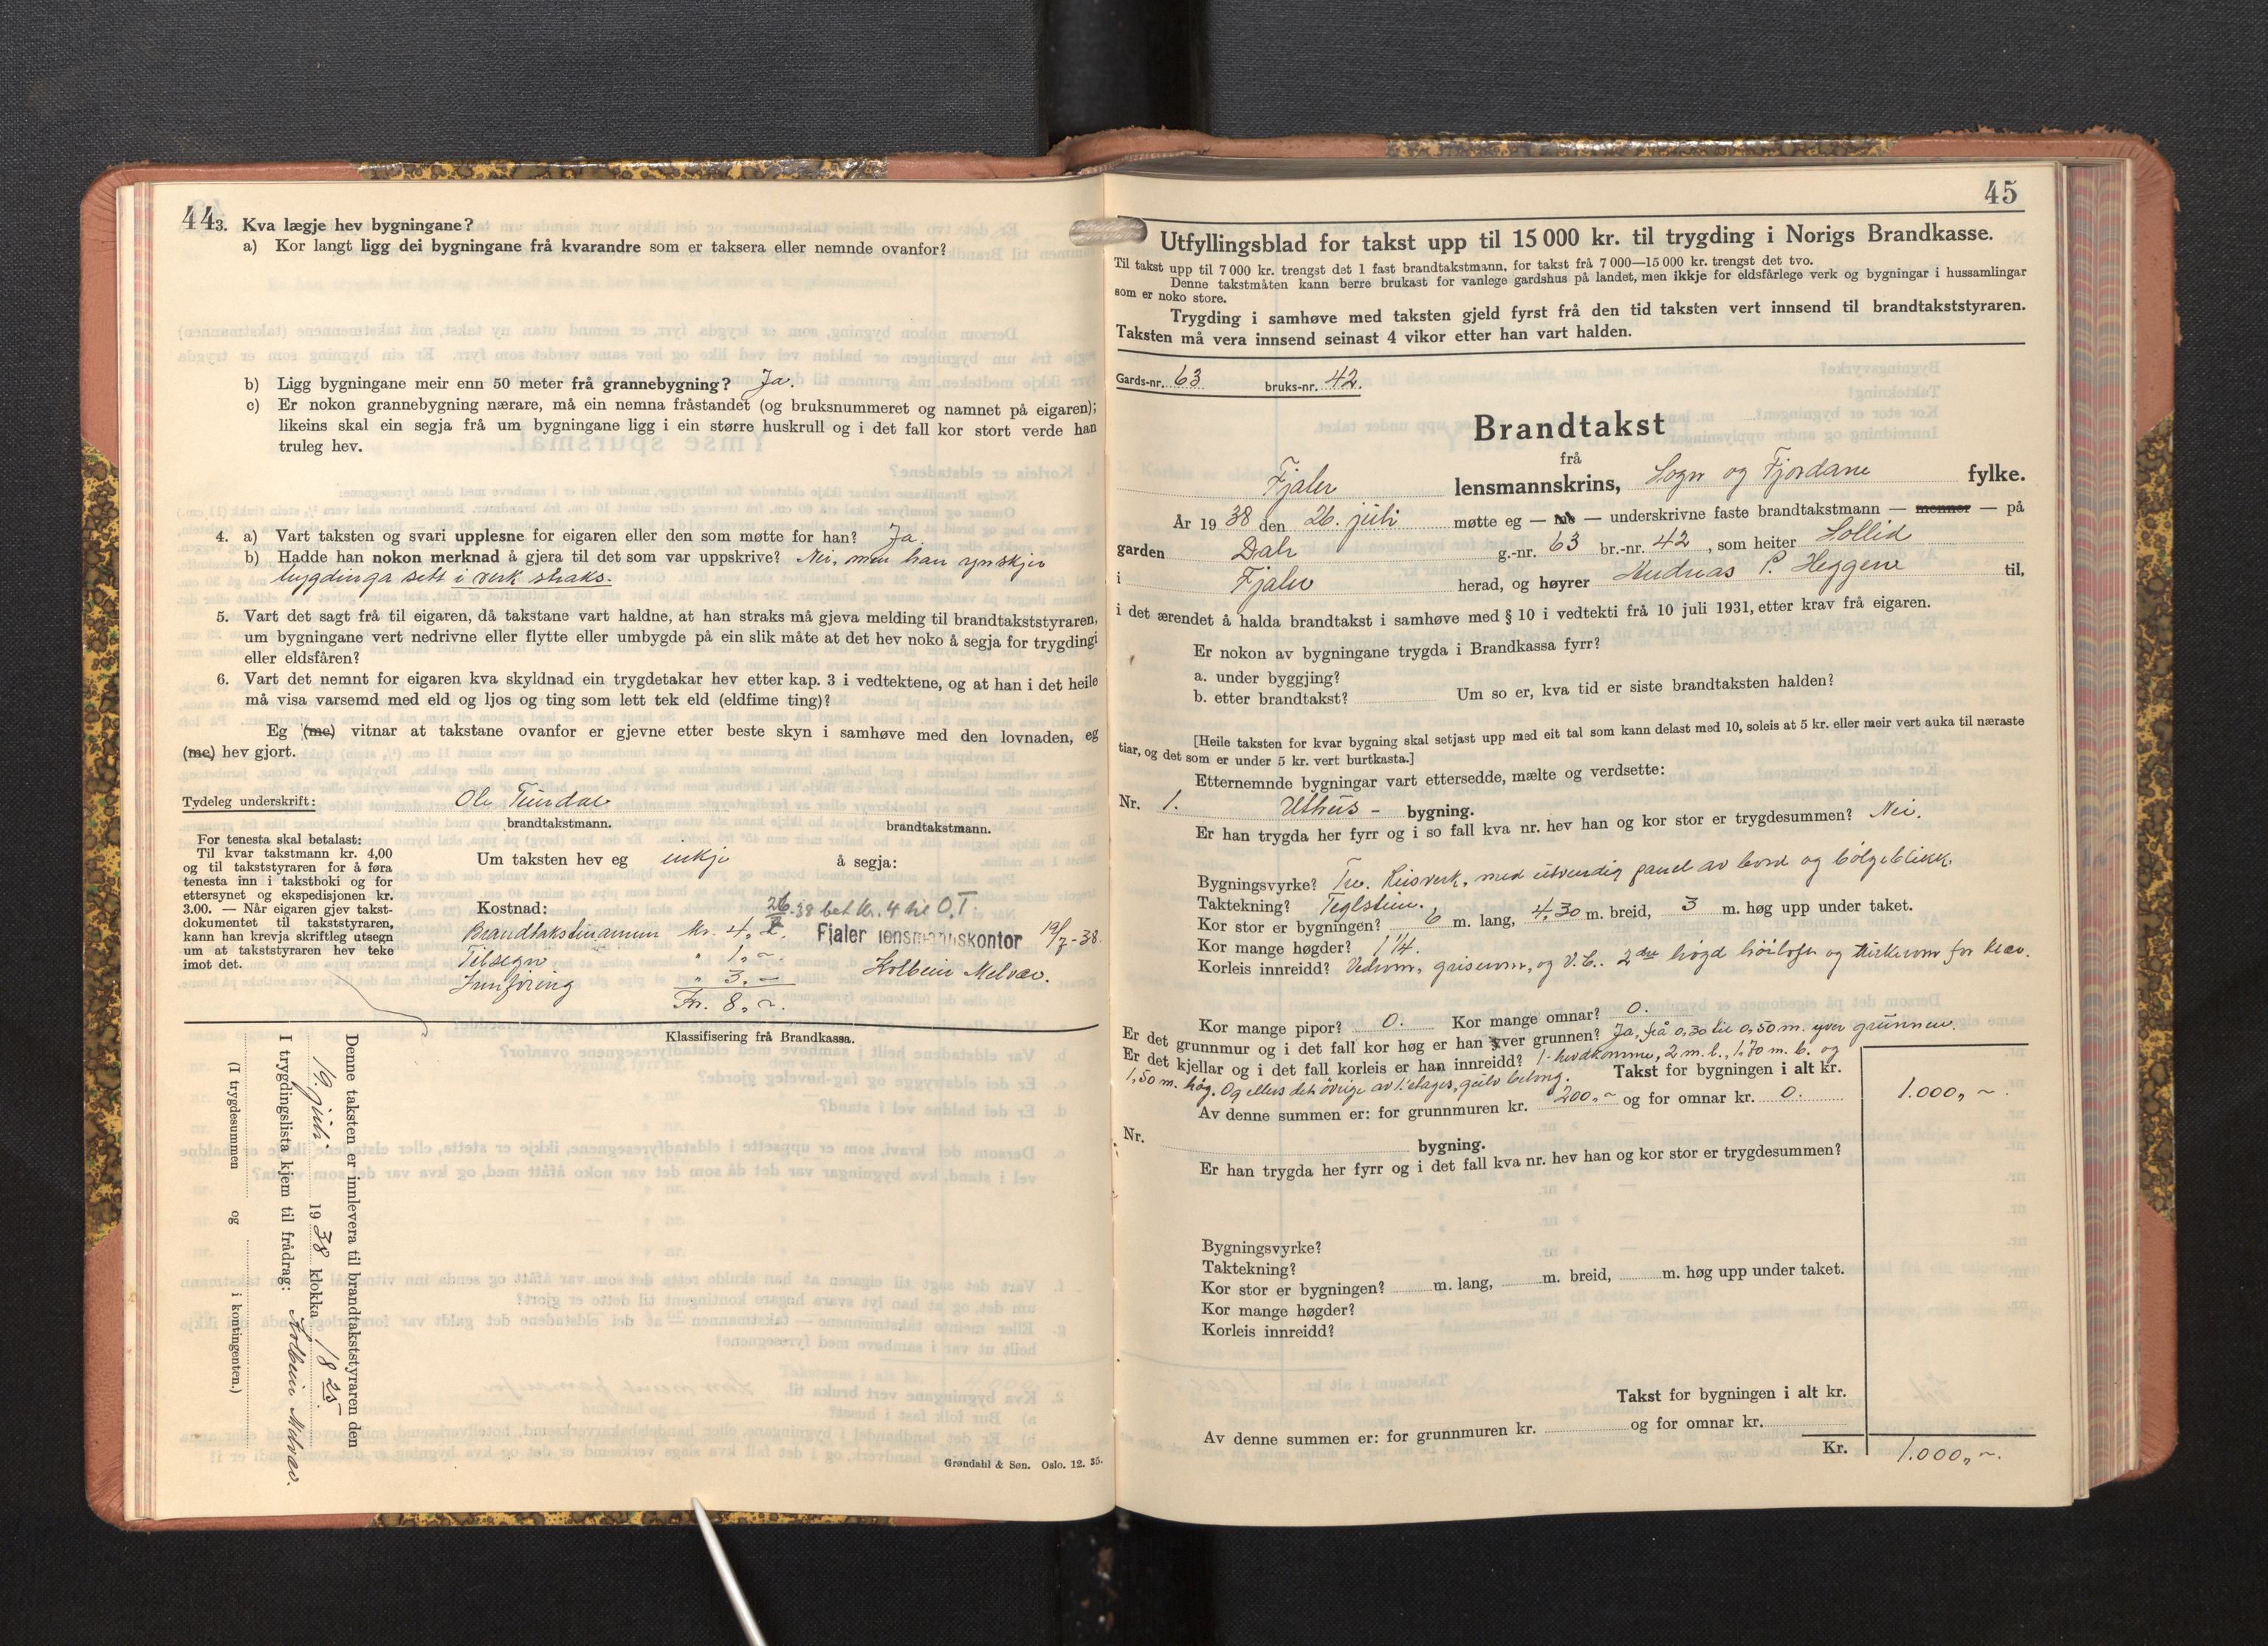 44
3. Kva lægje hev bygningane?
a) Kor langt ligg dei bygningane frå kvarandre som er taksera eller nemnde ovanfor?
b) Ligg bygningane meir enn 50 meter frå grannebygning? Ja.
c) Er nokon grannebygning nærare, må ein nemna fråstandet (og bruksnummeret og namnet på eigaren);
likeins skal ein segja frå um bygningane ligg i ein større huskrull og i det fall kor stort verde han
truleg hev.
4. a) Vart taksten og svari upplesne for eigaren eller den som møtte for han? Ja
b) Hadde han nokon merknad å gjera til det som var uppskrive? Nei, men han ynskjer
trygdinga sett i verk straks.
5. Vart det sagt frå til eigaren, då takstane vart haldne, at han straks må gjeva melding til brandtakststyraren,
um bygningane vert nedrivne eller flytte eller umbygde på ein slik måte at det hev noko å segja for trygdingi
eller eldsfåren?
6. Vart det nemnt for eigaren kva skyldnad ein trygdetakar hev etter kap. 3 i vedtektene, og at han i det heile
må visa varsemd med eld og ljos og ting som lett tek eld (eldfime ting)?
Eg (me) vitnar at takstane ovanfor er gjevne etter beste skyn i samhøve med den lovnaden, eg
(me) hev gjort.
Tydeleg underskrift: Ole
brandtakstmann. brandtakstmann.
For tenesta skal betalast:
Til kvar takstmann kr. 4,00
og til takststyraren for å føra
tenesta inn i takstboki og for
ettersynet og ekspedisjonen kr.
3.00. — Når eigaren gjev takst-
dokumentet til takststyraren,
kann han krevja skriftleg utsegn
um at takststyraren hev teke
imot det.
Um taksten hev eg inkje å segja:
Kostnad: 26/7.38 bet kr. 4 til O.T.
Brandtakstmannen kr. 4,- Fjaler lensmannskontor 19/7-38
Tilsegn " 1,-
Innføring " 3,- Kolbein Melvær.
Kr. 8,-
Klassifisering frå Brandkassa.
Denne taksten er innlevera til brandtakststyraren den
19. juli 1938 klokka 18 25
I trygdingslista kjem til frådrag: Kolbein Melvær.
(I trygdesummen og i kontingenten.)
Grøndahl & Søn. Oslo. 12. 35.
45
Utfyllingsblad for takst upp til 15 000 kr. til trygding i Norigs Brandkasse.
Til takst upp til 7 000 kr. trengst det 1 fast brandtakstmann, for takst frå 7 000—15 000 kr. trengst det tvo.
Denne takstmåten kann berre brukast for vanlege gardshus på landet, men ikkje for eldsfårlege verk og bygningar i hussamlingar
som er noko store.
Trygding i samhøve med taksten gjeld fyrst frå den tid taksten vert innsend til brandtakststyraren.
Taksten må vera innsend seinast 4 vikor etter han vart halden.
Gards-nr. 63 bruks-nr. 42.
Brandtakst
frå
Fjaler lensmannskrins, Sogn og Fjordane fylke.
År 1938 den 26. juli møtte eg — me — underskrivne faste brandtakstmann — menner — på
garden Dale g.-nr. 63 br.-nr. 42, som heiter Sollid
i Fjaler herad, og høyrer Andreas P. Heggene til,
i det ærendet å halda brandtakst i samhøve med § 10 i vedtekti frå 10 juli 1931, etter krav frå eigaren.
Er nokon av bygningane trygda i Brandkassa fyrr?
a. under byggjing?
b. etter brandtakst? Um so er, kva tid er siste brandtaksten halden?
[Heile taksten for kvar bygning skal setjast upp med eit tal som kann delast med 10, soleis at 5 kr. eller meir vert auka til næraste
tiar, og det som er under 5 kr. vert burtkasta.]
Etternemnde bygningar vart ettersedde, mælte og verdsette:
Nr. 1. Uthus - bygning.
Er han trygda her fyrr og i so fall kva nr. hev han og kor stor er trygdesummen? Nei.
Bygningsvyrke? Tre. Reisverk, med utvendig panel av bord og bølgeblikk.
Taktekning? Teglstein.
Kor stor er bygningen? 6 m. lang, 4,30 m. breid, 3 m. høg upp under taket.
Kor mange høgder? 1 1/4.
Korleis innreidd? Vedrom, griserom, og V.C. 2dre høgd høiloft og for klær.
Kor mange pipor? 0. Kor mange omnar? 0.
Er det grunnmur og i det fall kor høg er han yver grunnen? Ja, frå 0,30 til 0,50 m. yver grunnen.
Er det kjellar og i det fall korleis er han innreidd? 1 2 m. l., 1,70 m. b. og
1,50 m. høg. Og ellers det øvrige av 1. etages, gulv betong. Takst for bygningen i alt kr. 1.000,-
Av denne summen er: for grunnmuren kr. 200,- og for omnar kr. 0.
Nr. bygning.
Er han trygda her fyrr og i det fall kva nr. hev han og kor stor er trygdesummen?
Bygningsvyrke?
Taktekning?
Kor stor er bygningen? m. lang, m. breid, m. høg upp under taket.
Kor mange høgder?
Korleis innreidd?
Takst for bygningen i alt kr.
Av denne summen er: for grunnmuren kr. og for omnar kr.
Kr. 1.000,-